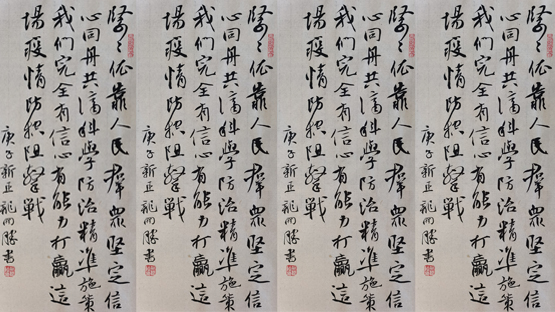 緊々依靠人民群眾堅定信
心同舟共濟科學防治精準施策
我们完全有信心有能力打贏這
場疫情防控阻擊戰
庚子新正龍勝書
緊々依靠人民群眾堅定信
心同舟共濟科學防治精準施策
我们完全有信心有能力打贏這
場疫情防控阻擊戰
庚子新正龍勝書
緊々依靠人民群眾堅定信
心同舟共濟科學防治精準施策
我们完全有信心有能力打贏這
場疫情防控阻擊戰
庚子新正龍勝書
緊々依靠人民群眾堅定信
心同舟共濟科學防治精準施策
我们完全有信心有能力打贏這
場疫情防控阻擊戰
庚子新正龍勝書